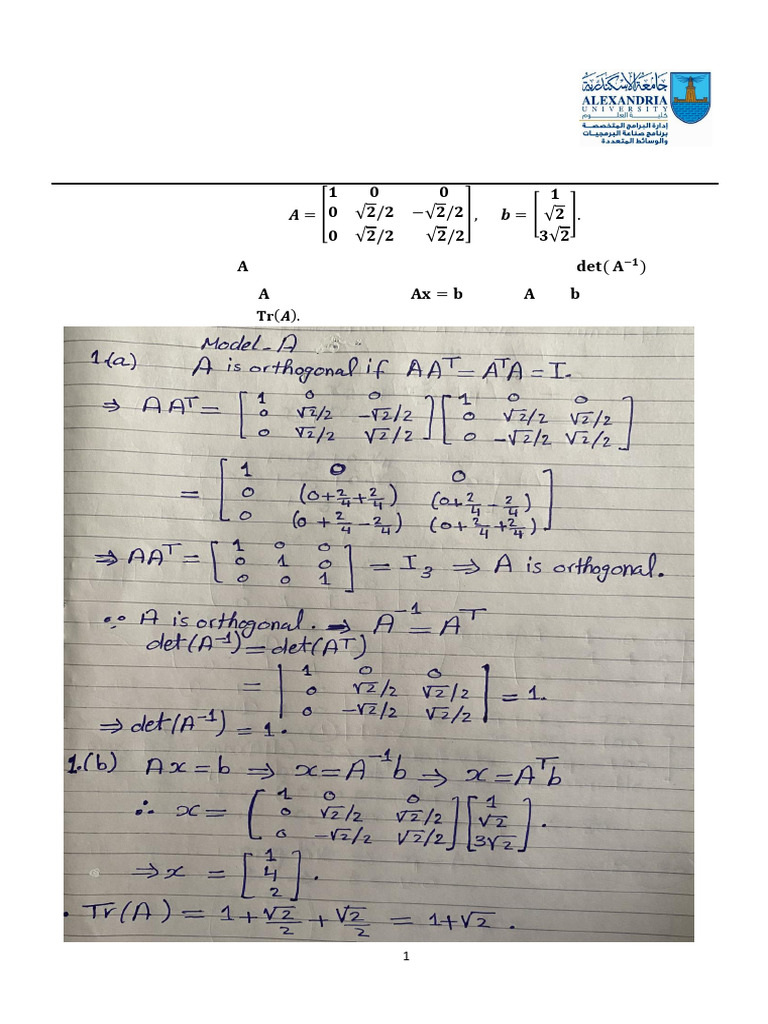 جامعة الإسكندرية
ALEXANDRIA
UNIVERSITY
كلية العلوم
إدارة البرامج المتخصصة
برنامج صناعة البرمجيات
والوسائط المتعددة
A = [1 0 0; 0 √2/2 −√2/2; 0 √2/2 √2/2], b = [1; √2; 3√2].
A det( A⁻¹)
A Ax = b A b
Tr(A).
Model-A
1.(a) A is orthogonal if AAᵀ = AᵀA = I.
⇒ AAᵀ = [1 0 0; 0 √2/2 -√2/2; 0 √2/2 √2/2] [1 0 0; 0 √2/2 √2/2; 0 -√2/2 √2/2]
= [1 0 0; 0 (0+2/4+2/4) (0+2/4-2/4); 0 (0+2/4-2/4) (0+2/4+2/4)]
⇒ AAᵀ = [1 0 0; 0 1 0; 0 0 1] = I₃ ⇒ A is orthogonal.
∵ A is orthogonal. ⇒ A⁻¹ = Aᵀ
det(A⁻¹) = det(Aᵀ)
= |1 0 0; 0 √2/2 √2/2; 0 -√2/2 √2/2| = 1.
⇒ det(A⁻¹) = 1.
1.(b) Ax = b ⇒ x = A⁻¹b ⇒ x = Aᵀb
∴ x = [1 0 0; 0 √2/2 √2/2; 0 -√2/2 √2/2] [1; √2; 3√2].
⇒ x = [1; 4; 2].
. Tr(A) = 1 + √2/2 + √2/2 = 1+√2.
1